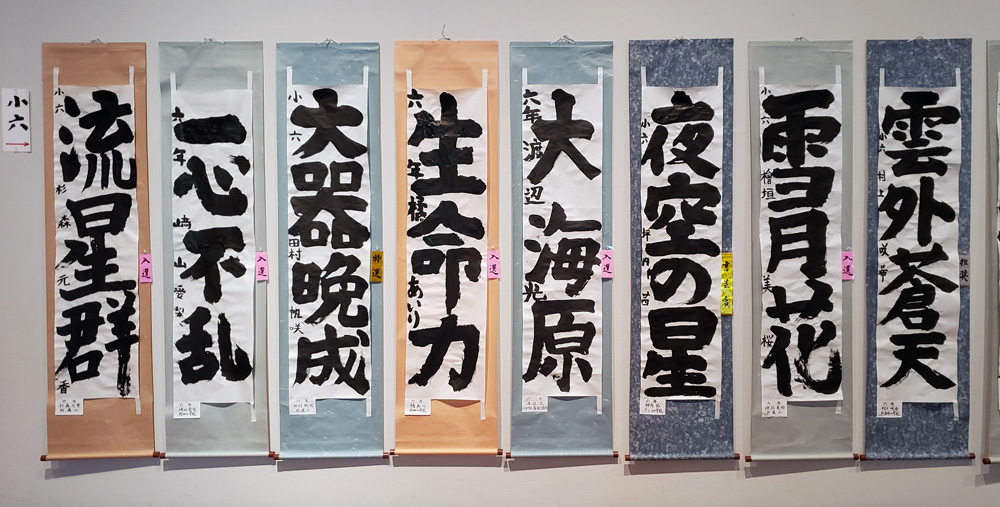 小六
流星群
小六 杉森 元香
入選
一心不乱
六年 崎山愛梨
入選
大器晩成
小六 田村帆咲
特選
生命力
六年 橘あいり
入選
大海原
六年 渡辺光
入選
夜空の星
小六 坪内茜
雪月花
小六 檜垣美桜
入選
雲外蒼天
小六 村上咲希
推奨